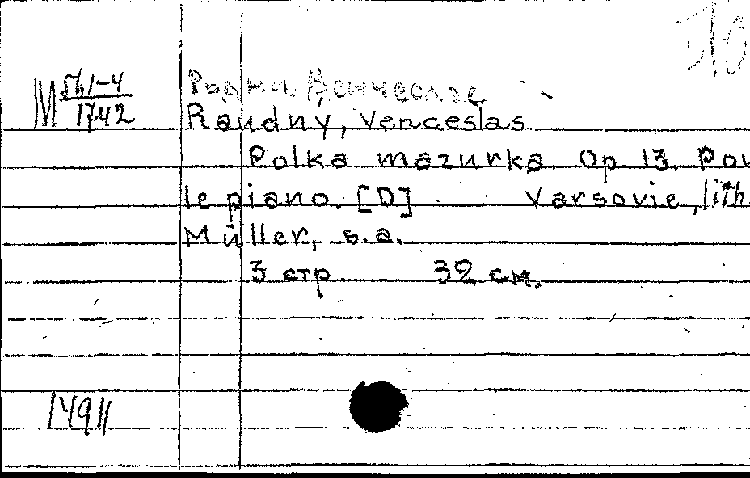 M 561-4/1742
Венчеслас
Raudny, Venceslas
Polka mazurka Op 13. Pou
le piano. [D] Varsovie, lith
Müller, s.a.
3 стр 32 см.